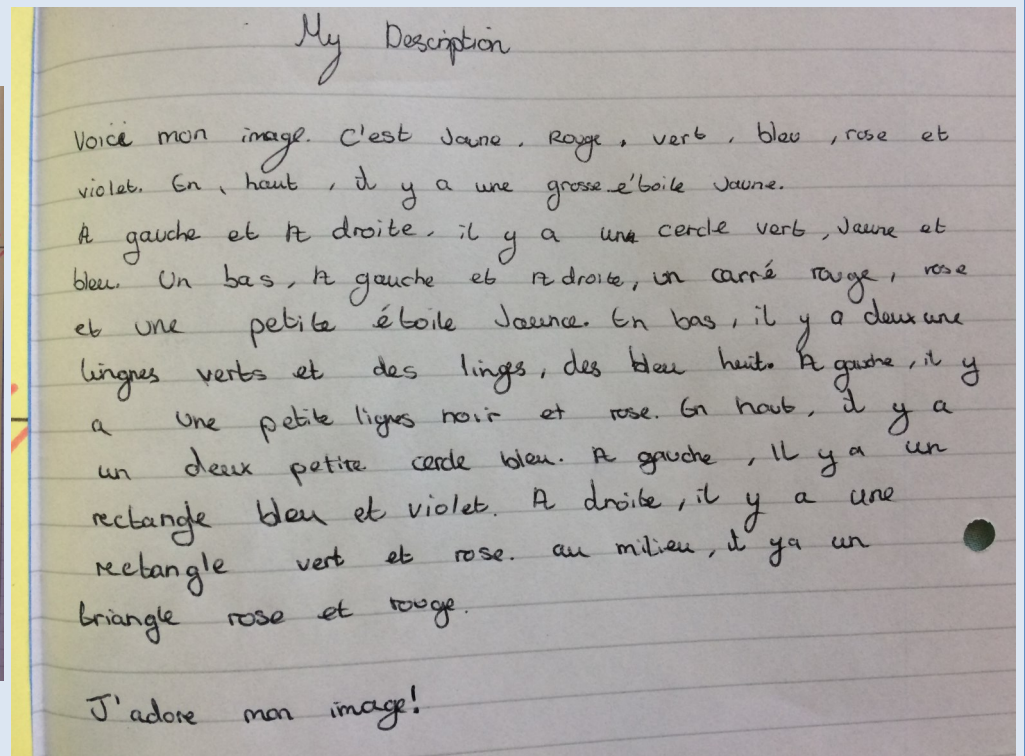 My Description
Voici mon image. C'est Jaune, Rouge, vert, bleu, rose et
violet. En, haut, il y a une grosse é'toile Jaune.
A gauche et A droite, il y a una cercle vert, Jaune et
bleu. Un bas, A gauche et A droite, un carré rouge, rose
et une petite étoile Jaunce. En bas, il y a deux une
lingnes verts et des linges, des bleu heut. A gauche, il y
a une petite lignes noir et rose. En haut, il y a
un deux petite cercle bleu. A gauche, Il y a un
rectangle bleu et violet. A droite, il y a une
rectangle vert et rose. au milieu, il ya un
triangle rose et rouge.
J'adore mon image!